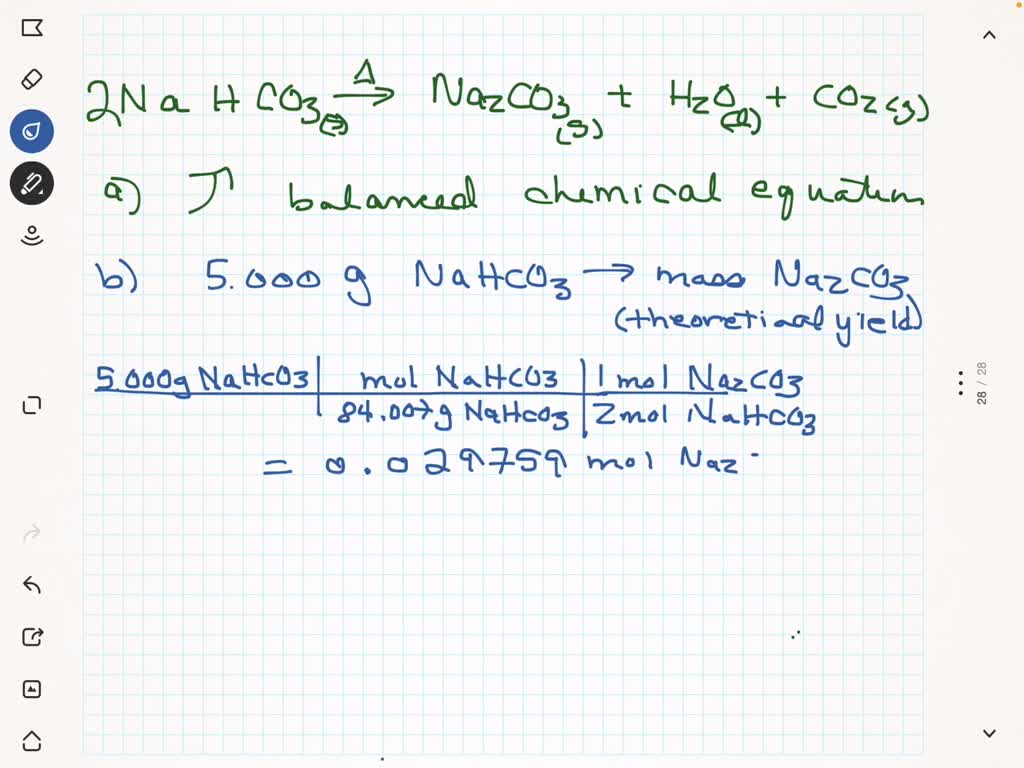 2NaHCO3(s) Δ→ Na2CO3(s) + H2O(l) + CO2(g)
a) ↑ balanced chemical equation
b) 5.000 g NaHCO3 → mass Na2CO3
(theoretical yield)
5.000g NaHCO3 | mol NaHCO3 | 1 mol Na2CO3
84.007g NaHCO3 | 2 mol NaHCO3
= 0.029759 mol Na2
28 / 28